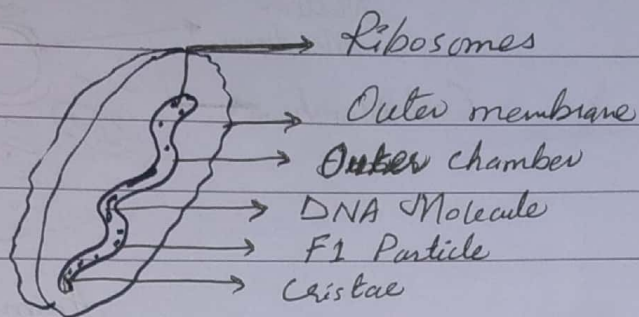 Ribosomes
Outer membrane
Outer chamber
DNA Molecule
F1 Particle
Cristae